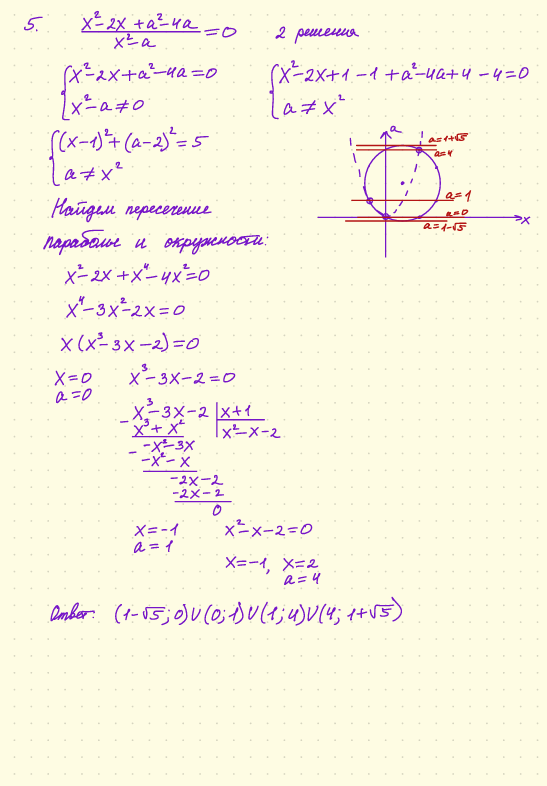 5. (x²-2x+a²-4a)/(x²-a) = 0   2 решения
{x²-2x+a²-4a=0   {x²-2x+1-1+a²-4a+4-4=0
{x²-a≠0   {a≠x²
{(x-1)²+(a-2)²=5
{a≠x²
a
a=1+√5
a=4
a=1
a=0
a=1-√5
x
Найдем пересечение
параболы и окружности:
x²-2x+x⁴-4x²=0
x⁴-3x²-2x=0
x(x³-3x-2)=0
x=0   x³-3x-2=0
a=0
x³-3x-2 | x+1
- x³+x² | x²-x-2
-x²-3x
- -x²-x
-2x-2
-2x-2
0
x=-1   x²-x-2=0
a=1
x=-1, x=2
a=4
Ответ: (1-√5; 0)∪(0; 1)∪(1; 4)∪(4; 1+√5)